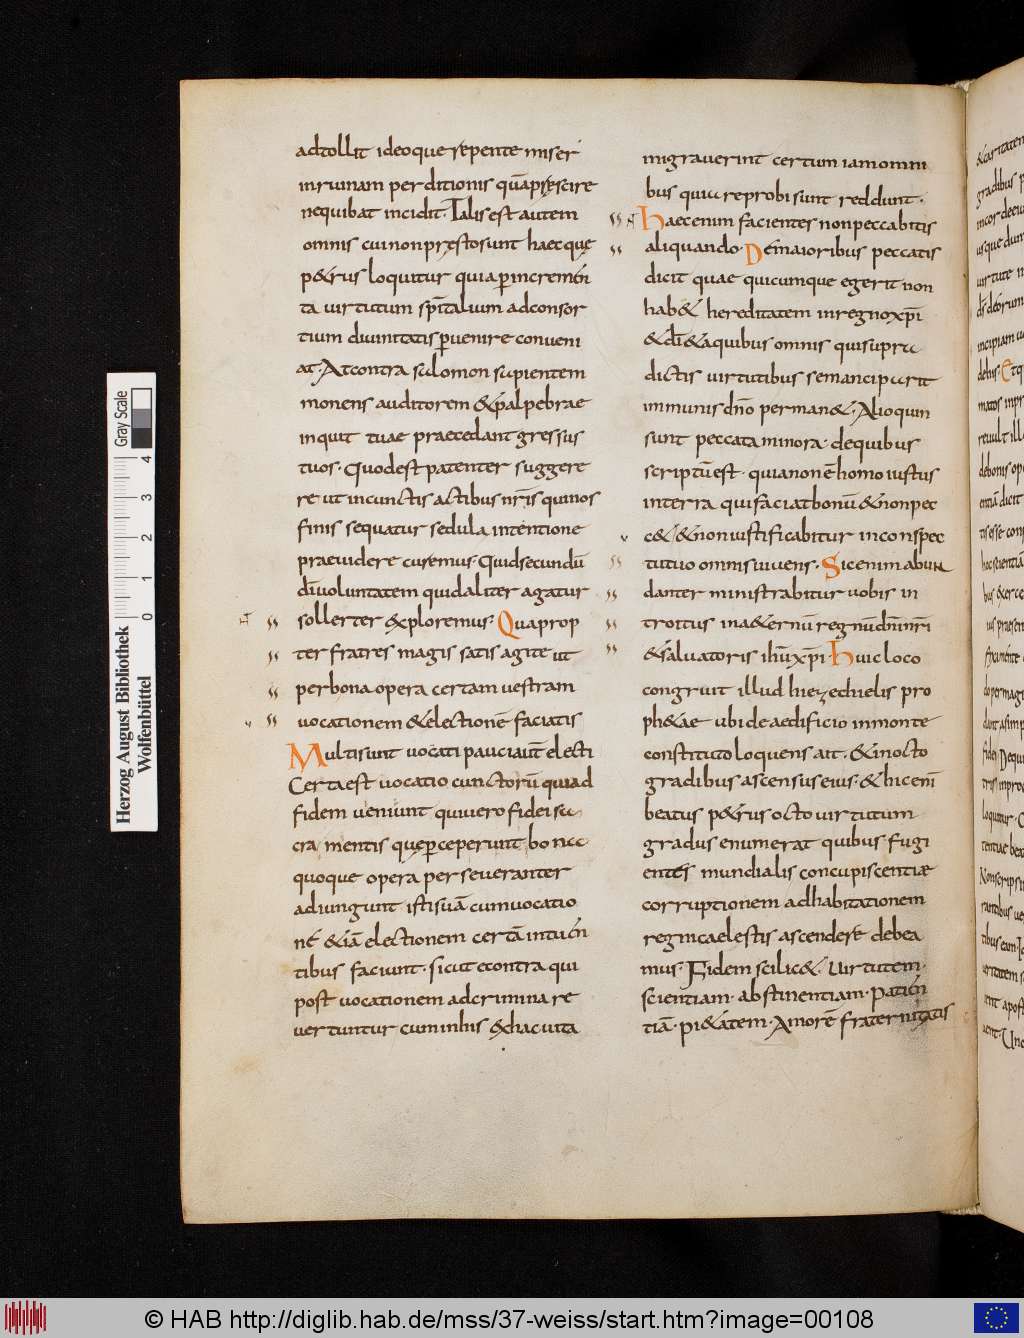 adtollit ideoque repente miser
inruinam perditionis quā praescire
nequibat incidit. Talis est autem
omnis cui non pręsto sunt haec que
p&rus loquitur quia p̲ incremen
ta uirtutum sp̄italium adconsor
tium diuinitatis p̲uenire conueni
at. At contra salomon sapientem
monens auditorem &palpebrae
inquit tuae praecedant gressus
tuos. Quod est patenter suggere
re ut incunctis actibus nr̄is qui nos
finis sequatur sedula intentione
praeuidere curemus. Quid secundū
dī uoluntatem quid aliter agatur
sollerter exploremus. Quaprop
ter fratres magis satis agite ut
per bona opera certam uestram
uocationem & electionē faciatis
Multi sunt uocati pauci aūt electi
Certa est uocatio cunctorū qui ad
fidem ueniunt qui uero fidei sa
cra mentis quę p̲ceperunt bona
quoque opera perseueranter
adiungunt isti suā cum uocatio
ne &iā electionem certā intuen
tibus faciunt. sicut econtra qui
post uocationem ad crimina re
uertuntur cum inhis &hac uita
migrauerint certum iam omni
bus quia reprobi sunt reddunt.
Haec enim facientes non peccabitis
aliquando. De maioribus peccatis
dicit quae quicumque egerit non
hab& hereditatem in regno xp̄i
&dī &a quibus omnis qui supra
dictis uirtutibus semancipauit
immunis dn̄o perman&. Alioquin
sunt peccata minora. de quibus
scriptū est. quia non ē homo iustus
in terra qui faciat bonū &non pec
c& &non iustificabitur in conspec
tu tuo omnis uiuens. Sic enim abun
danter ministrabitur uobis in
troitus in a&ernū regnū dn̄i nr̄i
&saluatoris ihū xp̄i. Huic loco
congruit illud hiezechielis pro
ph&ae ubi de aedificio in monte
constituto loquens ait. & in octo
gradibus ascensus eius. & hic enī
beatus p&rus octo uirtutum
gradus enumerat quibus fugi
entes mundialis concupiscentiæ
corruptionem ad habitationem
regni caelestis ascendere debea
mus. Fidem scilic&. Uirtutem.
scientiam. abstinentiam. patien
tiā. pi&atem. Amorē fraternitatis
Herzog August Bibliothek
Wolfenbüttel
0 1 2 3 4
Gray Scale
© HAB http://diglib.hab.de/mss/37-weiss/start.htm?image=00108